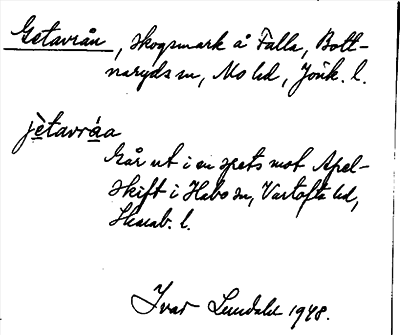 Getavrån, skogsmark å Falla, Bott-
naryds sn, Mo hd, Jönk. l.
jètavrá̲a
Går ut i en spets mot Apel-
skift i Habo sn, Vartofta hd,
Skarab. l.
Ivar Lundahl 1948.